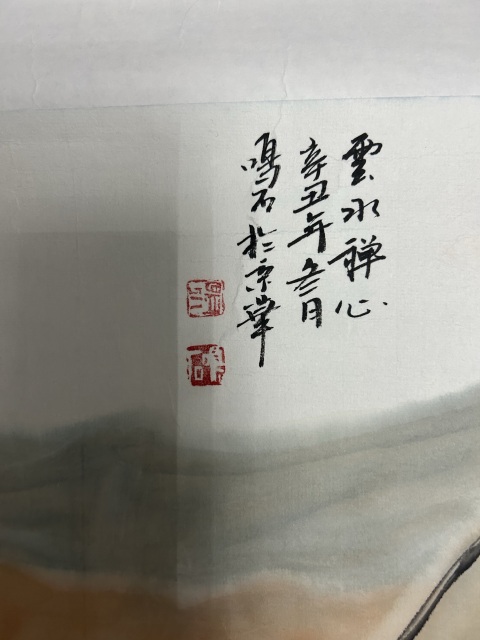 雲水禅心
辛丑年冬月
鸣石於京華